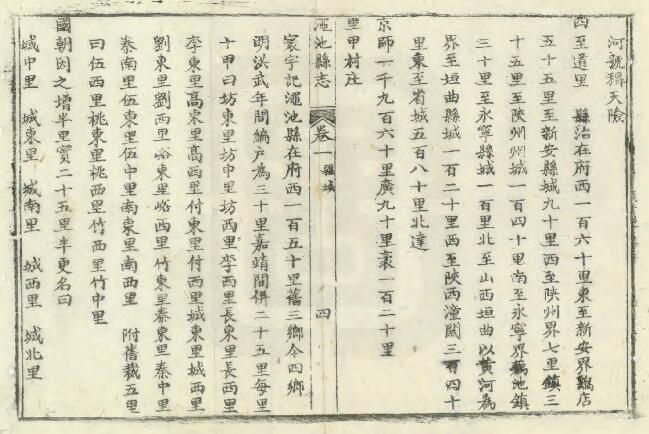 河號稱天險
四至道里　縣治在府西一百六十里東至新安界鐵店
五十五里至新安縣城九十里西至陝州界七里鎮三
十五里至陝州州城一百四十里南至永寧界藕池鎮
三十里至永寧縣城一百里北至山西垣曲以黃河為
界至垣曲縣城一百二十里西至陝西潼關三百四十
里東至省城五百八十里北達
京師一千九百六十里廣九十里袤一百二十里
里甲村庄
澠池縣志　卷一　疆域　四
寰宇記澠池縣在府西一百五十里舊三鄉今四鄉
明洪武年間編戶為三十里嘉靖間併二十五里每里
十甲曰坊東里坊中里坊西里李西里長東里長西里
李東里高東里高西里付東里付西里城東里城西里
劉東里劉西里峪東里峪西里竹東里秦東里秦中里
秦南里伍東里伍中里南東里南西里　附舊裁五里
曰伍西里桃東里桃西里竹西里竹中里
國朝因之增半里實二十五里半更名曰
城中里　城東里　城南里　城西里　城北里